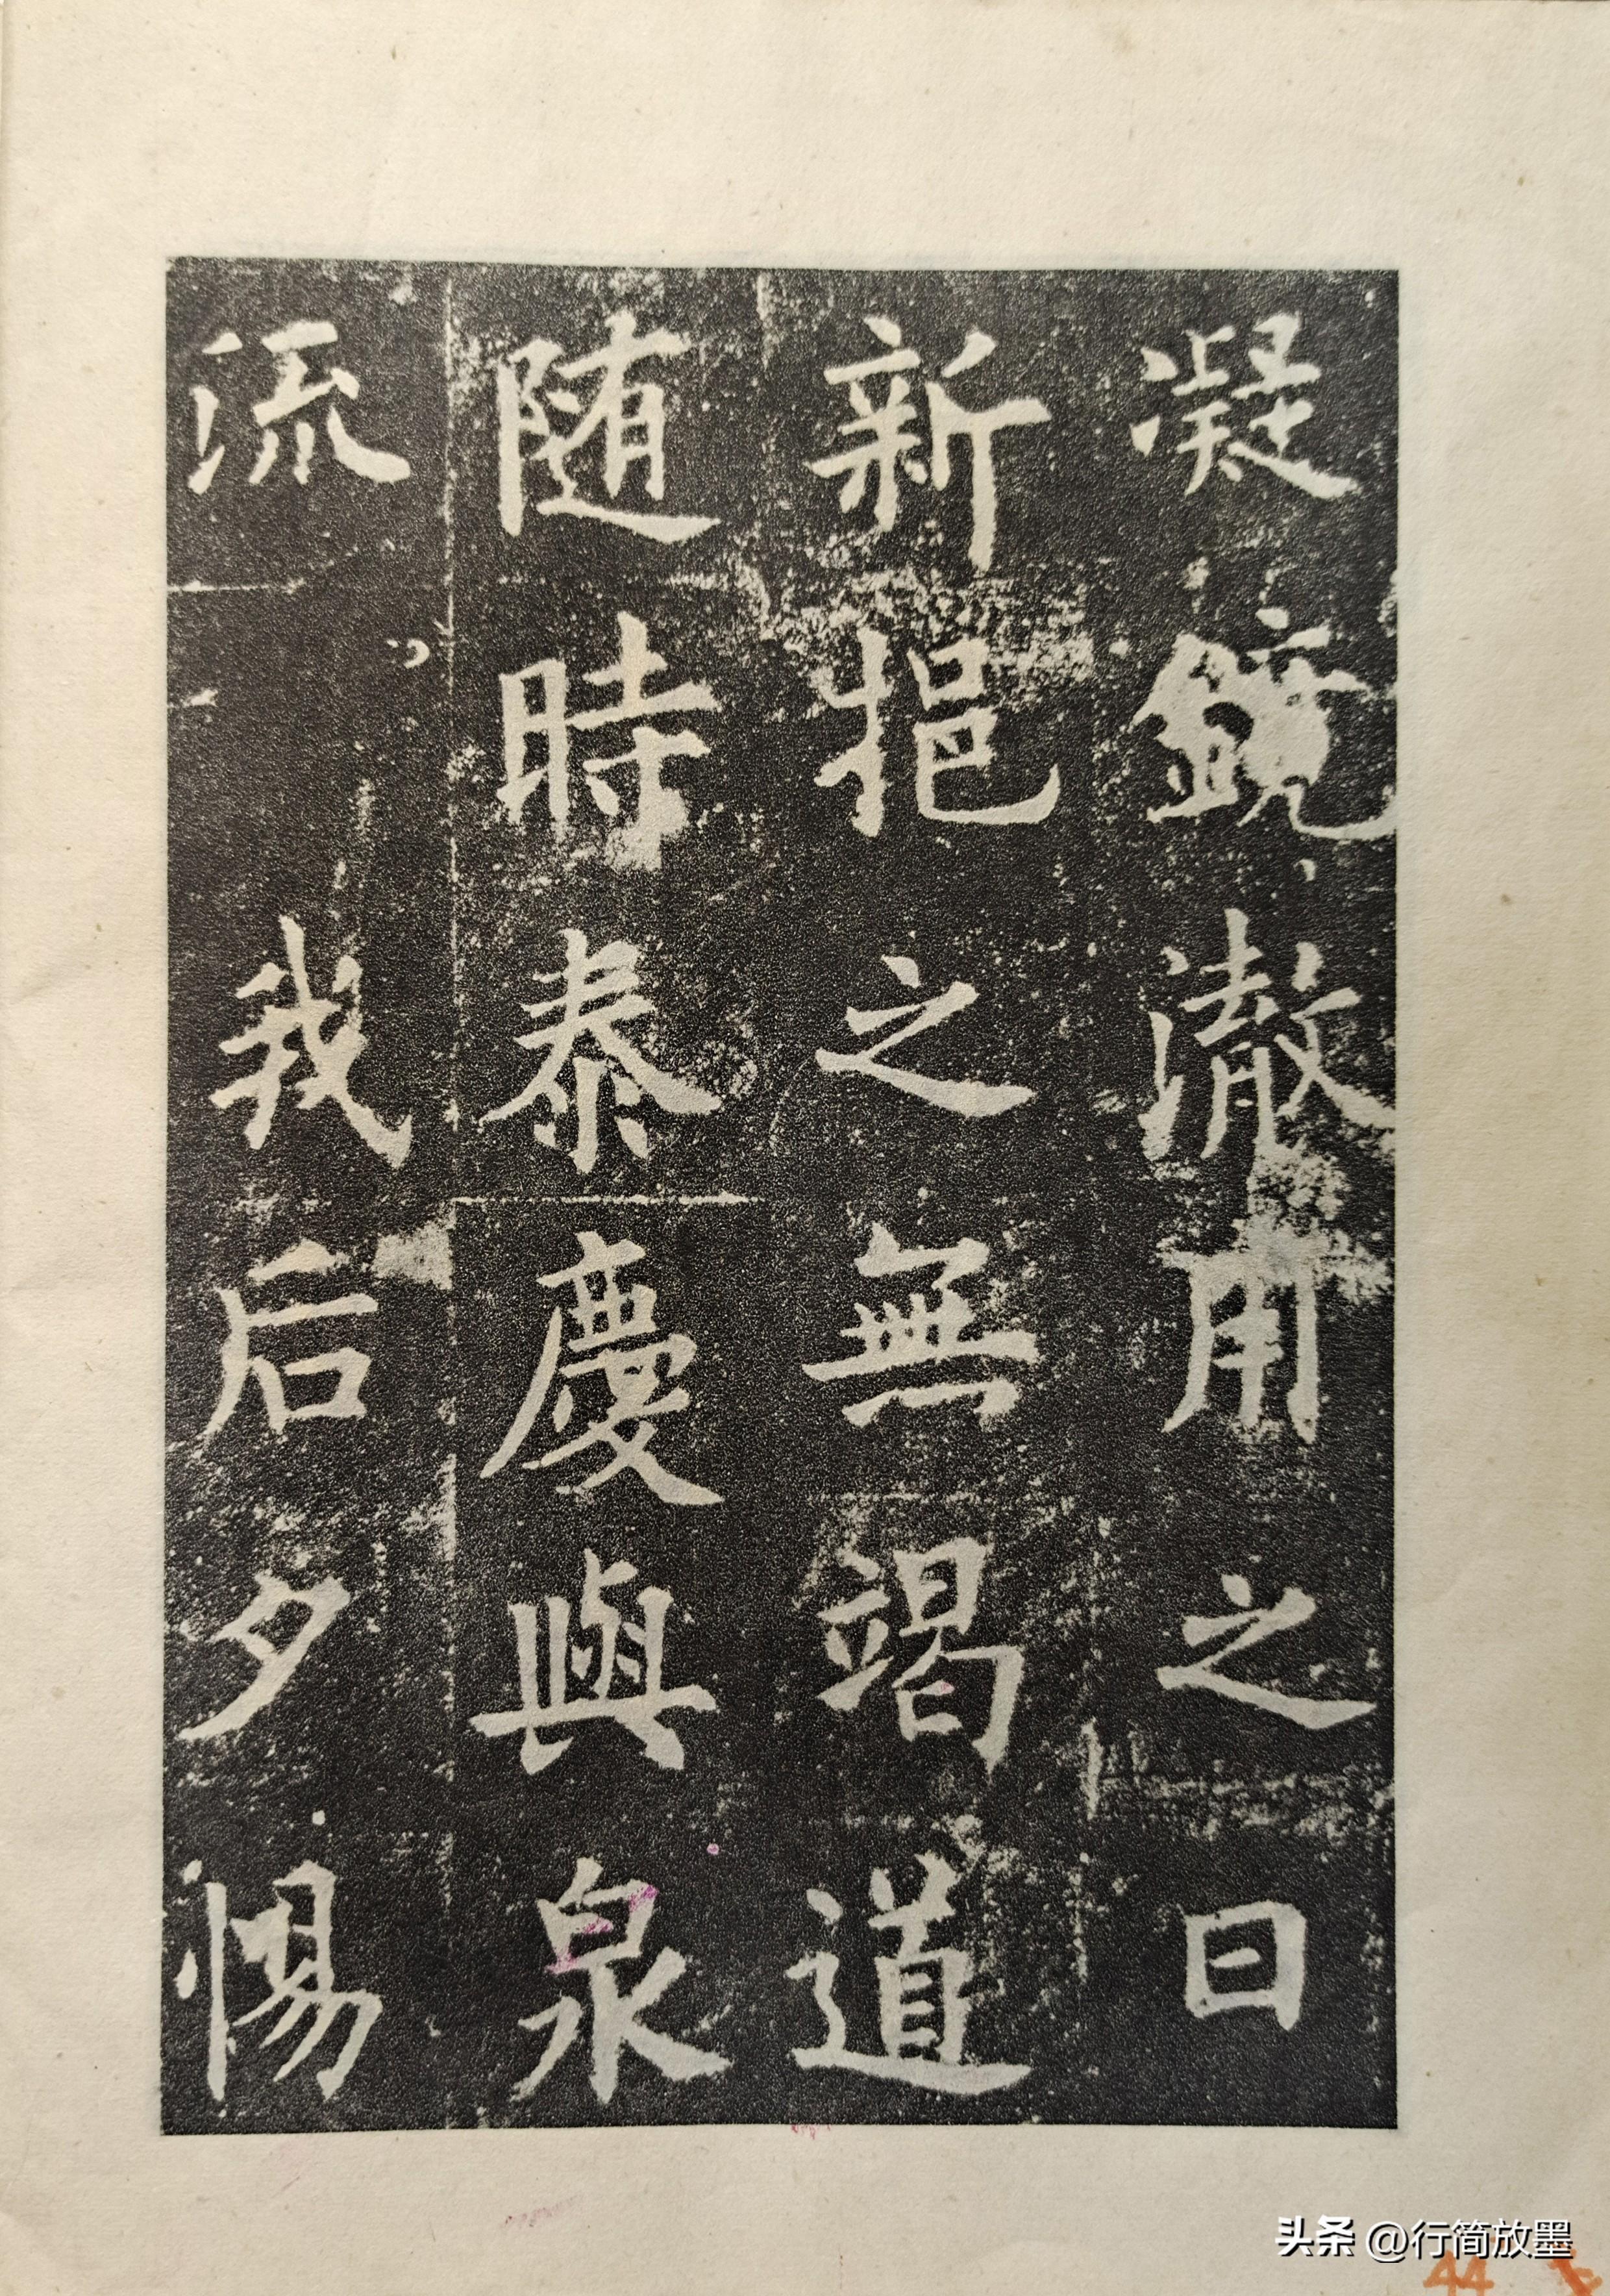 凝鏡澈用之日
新挹之無竭道
随時泰慶與泉
流我后夕惕
头条 @行简放墨
44